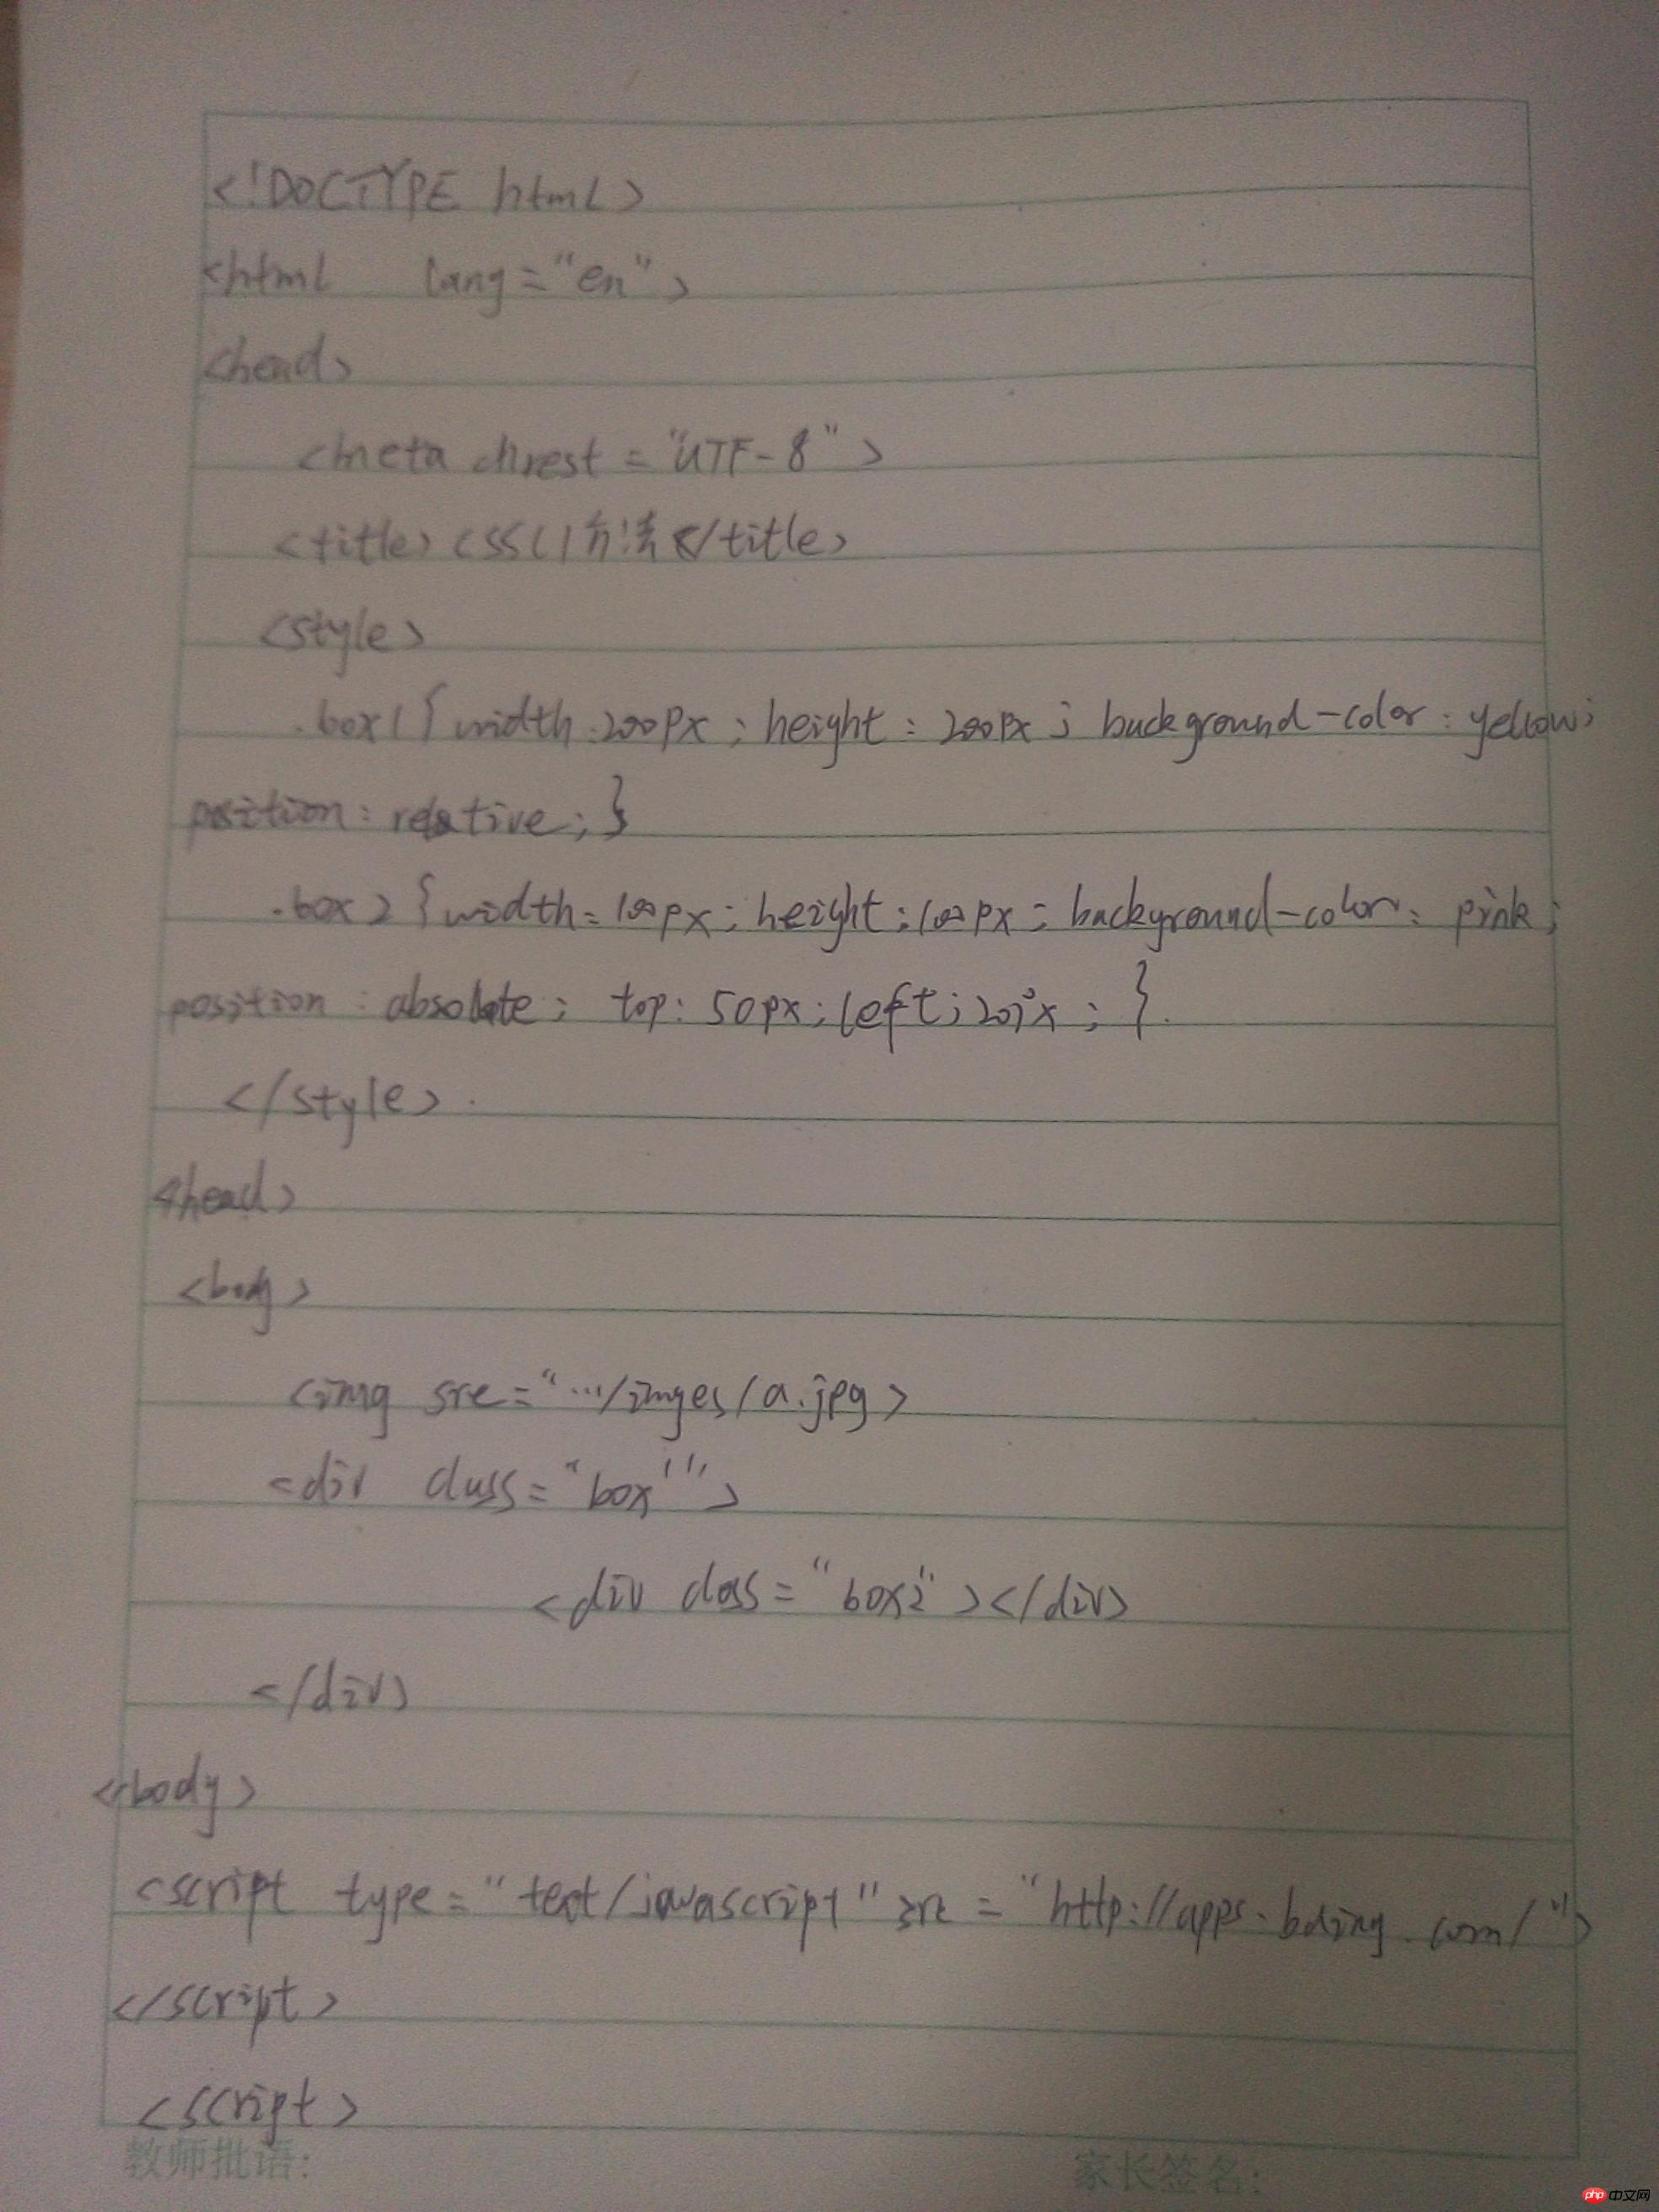 <!DOCTYPE html>
<html lang="en">
<head>
<meta chrest="UTF-8">
<title>css()方法</title>
<style>
.box1{width:200px;height:200px;background-color:yellow;
position:relative;}
.box2{width:100px;height:100px;background-color:pink;
position:absolute;top:50px;left;20px;}
</style>
</head>
<body>
<img src=".../imges/a.jpg>
<div class="box1">
<div class="box2"></div>
</div>
</body>
<script type="text/javascript" src="http://apps.bding.com/">
</script>
<script>
教师批语:
家长签名:
php中文网